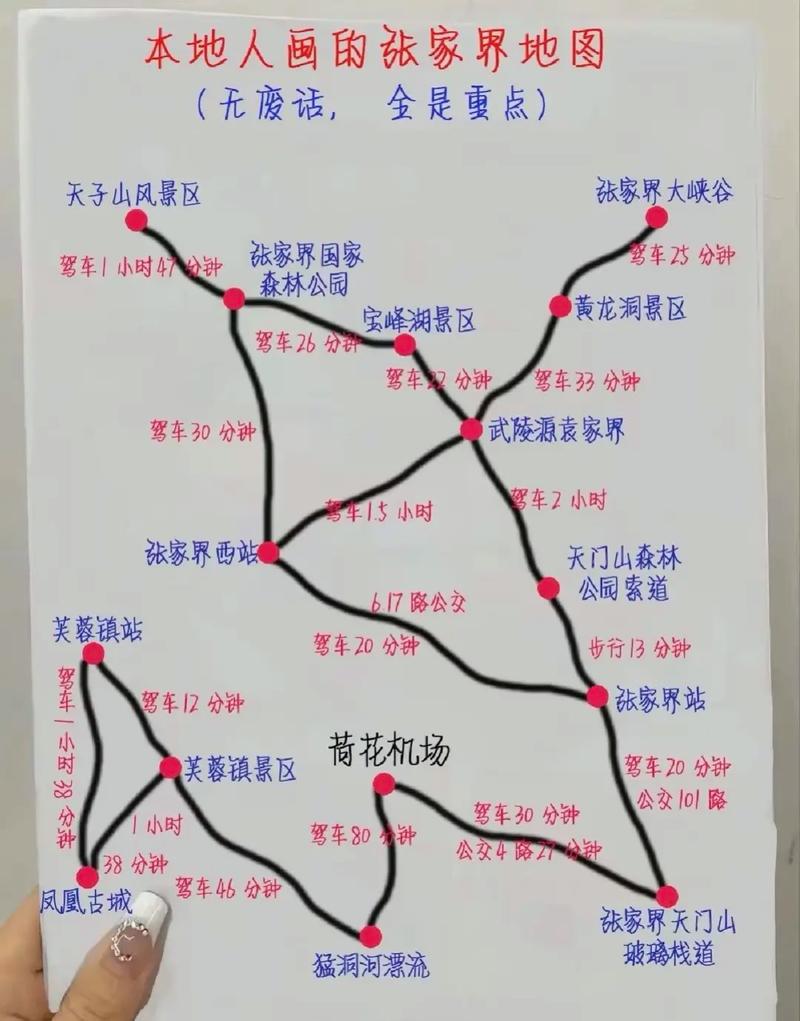 本地人画的张家界地图
(无废话, 全是重点)
天子山风景区
张家界大峡谷
驾车1小时47分钟
张家界国家
森林公园
驾车25分钟
宝峰湖景区
黄龙洞景区
驾车26分钟
驾车22分钟
驾车33分钟
驾车30分钟
武陵源袁家界
驾车1.5小时
驾车2小时
张家界西站
天门山森林
公园索道
6.17路公交
驾车20分钟
步行13分钟
芙蓉镇站
驾车1小时38分钟
驾车12分钟
张家界站
荷花机场
芙蓉镇景区
驾车20分钟
公交101路
1小时
38分钟
驾车80分钟
驾车30分钟
公交4路27分钟
驾车46分钟
凤凰古城
张家界天门山
玻璃栈道
猛洞河漂流